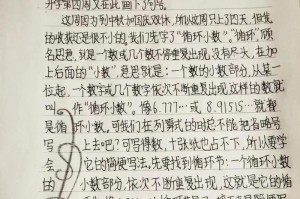 升学第四周又在此画下了句号。
这周因为到中秋加国庆双休,所以这周只上四天,但我
的收获还是很不小的。我们先学了“循环小数”。“循环”,顾
名思意,就是一个数或几个数不停重复出现,没有尽头,在加
上右面的“小数”,意思就是:一个数的小数部分,从某一
位起,一个数字或几个数字依次不断重复出现,这样的数就
叫作“循环小数”。像6.777…或8.91515…就都
是循环小数,可我们在列算式的时总不能把省略号
写上去吧?可写得数,十张纸也占不下,所以要学
会它的简便写法,先要找到循环节:一个循环小数的
小数部分,依次不断重复出现,这就是它的循